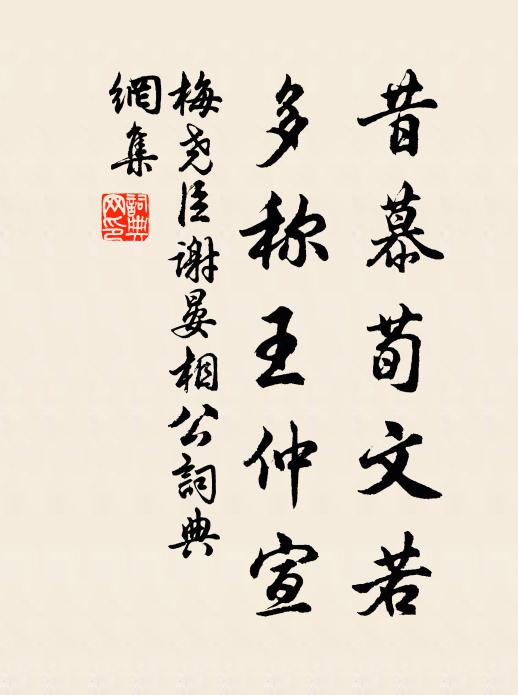 昔慕荀文若
多称王仲宣
梅尧臣谢晏相公詞典
網集
詞典
网印